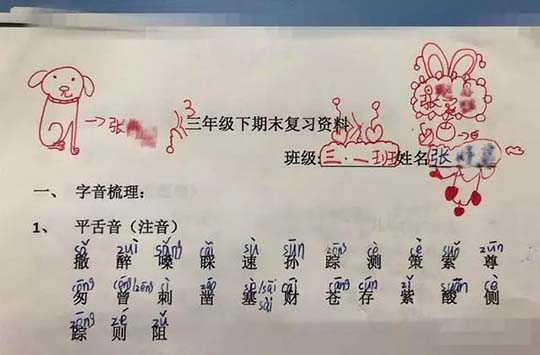 张
三年级下期末复习资料
班级:三·一班姓名张
一、 字音梳理：
1、 平舌音（注音）
sǎ zuì sǎng cǎi sù sūn zōng cè cè suǒ zūn
撒 醉 嗓 睬 速 孙 踪 测 策 索 尊
cōng céng/zēng cì záo sè/sāi cái cāng cún zǐ suān cè
匆 曾 刺 凿 塞 财 苍 存 紫 酸 侧
sài
zōng zé zǔ
踪 则 阻